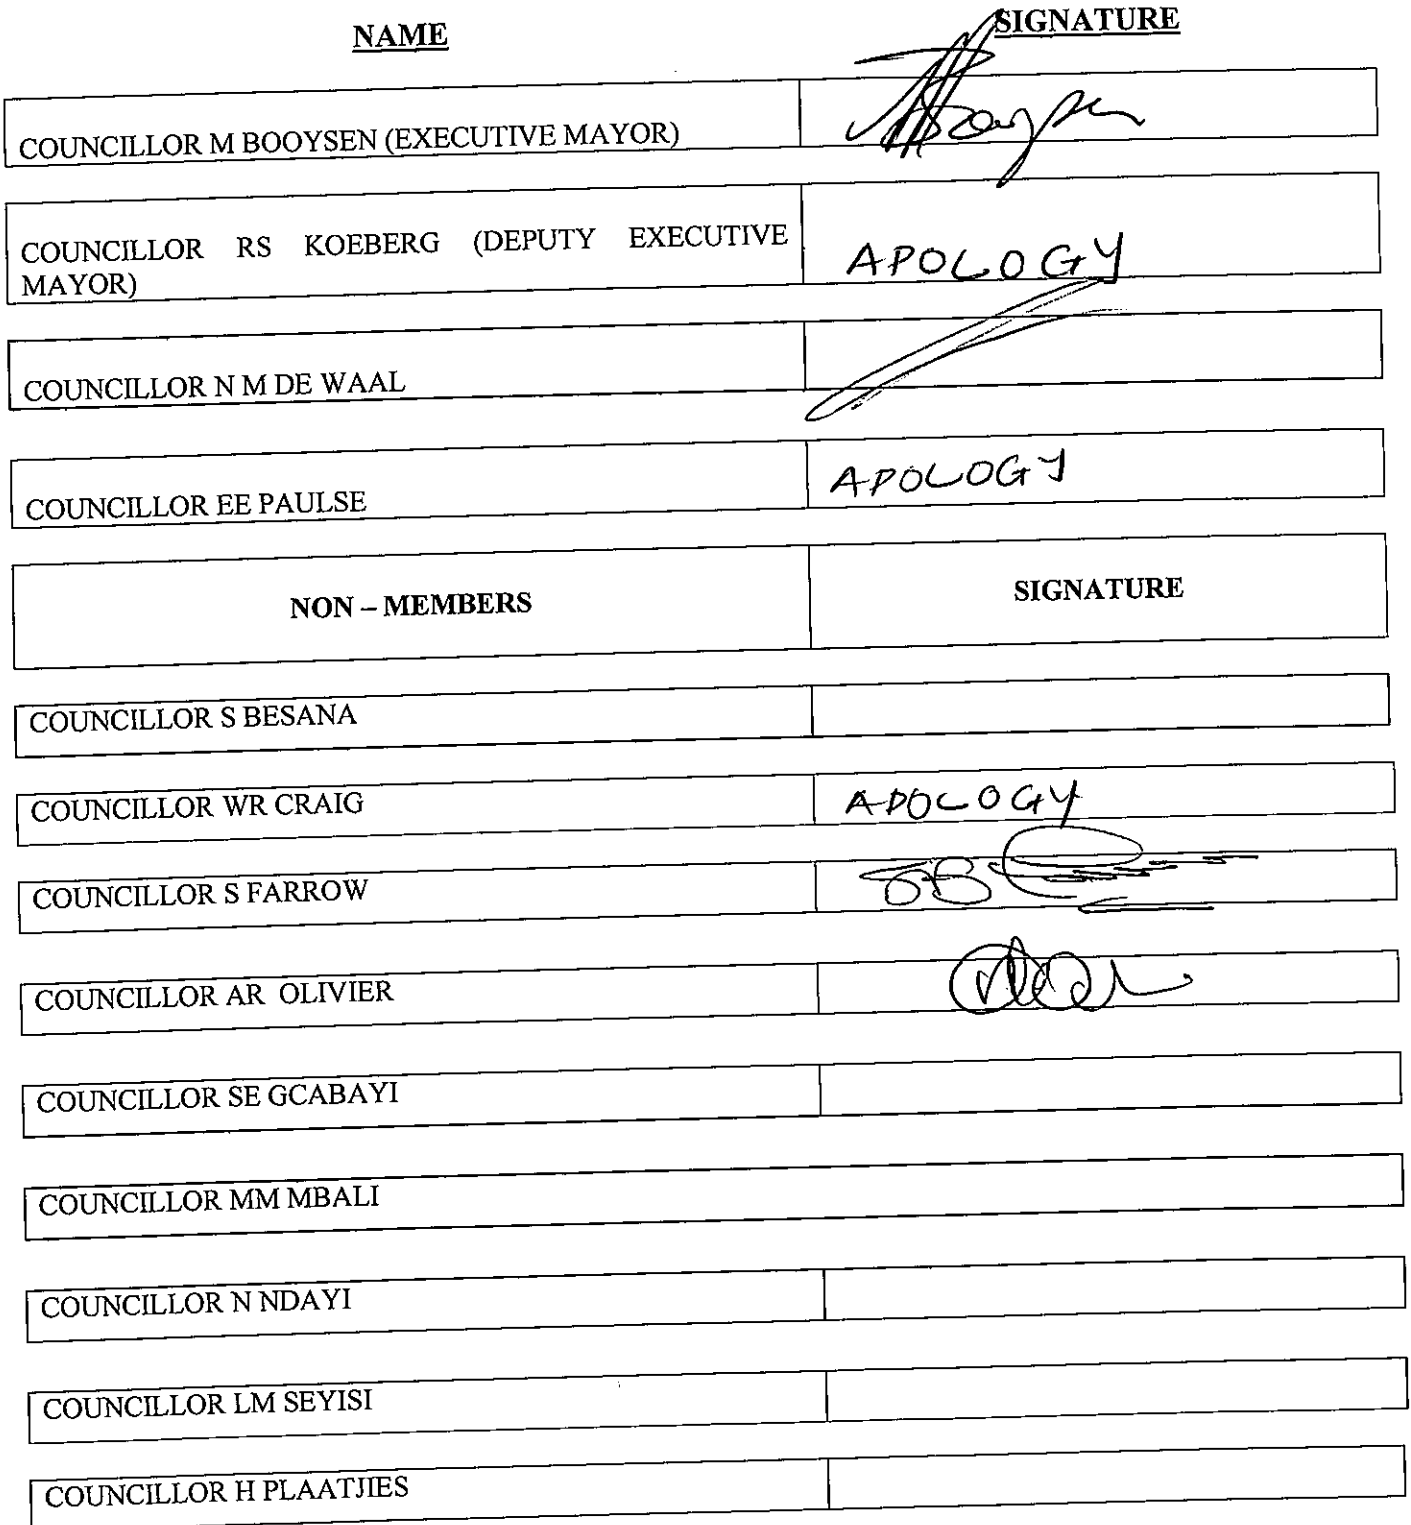 NAME SIGNATURE
COUNCILLOR M BOOYSEN (EXECUTIVE MAYOR) Booysen
COUNCILLOR RS KOEBERG (DEPUTY EXECUTIVE
MAYOR) APOLOGY
COUNCILLOR N M DE WAAL
COUNCILLOR EE PAULSE APOLOGY
NON – MEMBERS SIGNATURE
COUNCILLOR S BESANA
COUNCILLOR WR CRAIG APOLOGY
COUNCILLOR S FARROW
COUNCILLOR AR OLIVIER
COUNCILLOR SE GCABAYI
COUNCILLOR MM MBALI
COUNCILLOR N NDAYI
COUNCILLOR LM SEYISI
COUNCILLOR H PLAATJIES